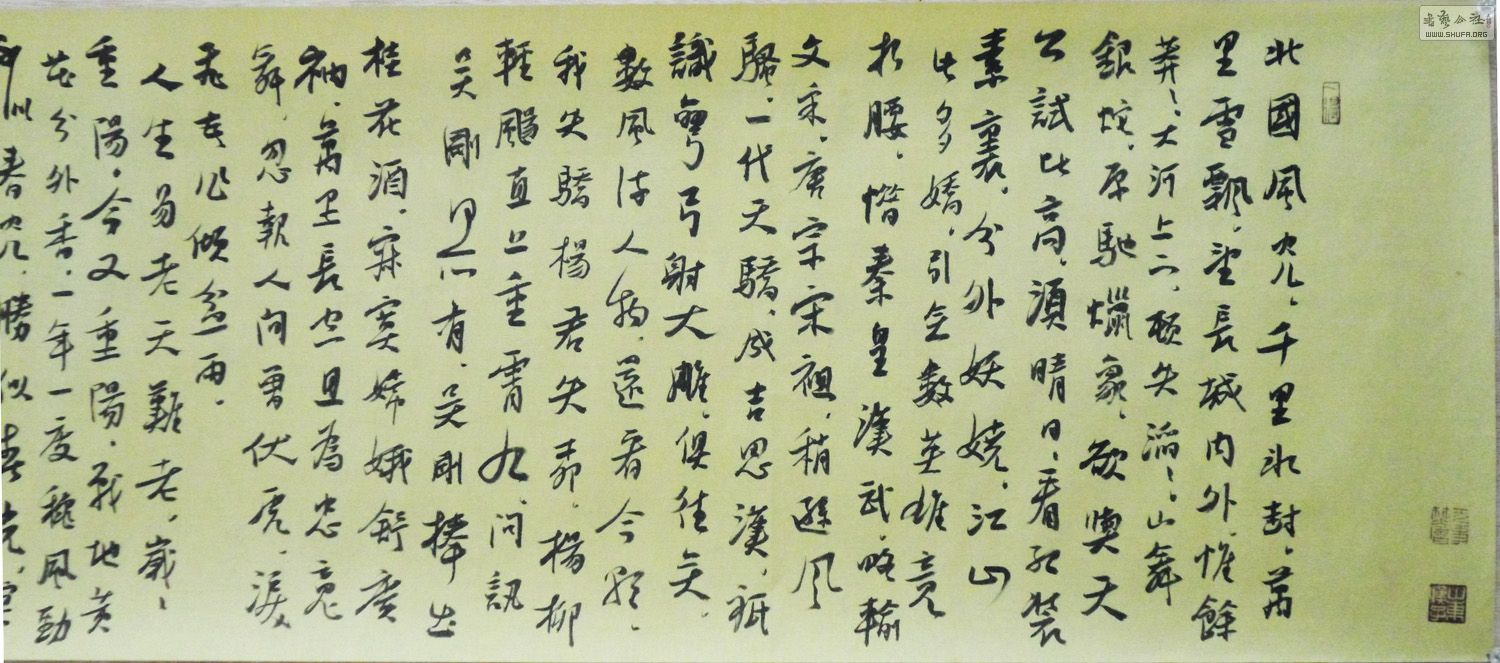 北國風光,千里冰封,萬
里雪飄,望長城內外,惟餘
莽〻,大河上下,頓失滔〻,山舞
銀蛇,原馳蠟象,欲與天
公試比高,須晴日,看紅裝
素裹,分外妖嬈,江山
如此多嬌,引無數英雄競
折腰,惜秦皇漢武,略輸
文采,唐宗宋祖,稍遜風
騷,一代天驕,成吉思漢,祗
識彎弓射大雕,俱往矣,
數風流人物,還看今朝,
我失驕楊君失柳,楊柳
輕颺直上重霄九,問訊
吳剛何所有,吳剛捧出
桂花酒,寂寞嫦娥舒廣
袖,萬里長空且為忠魂
舞,忽報人間曾伏虎,淚
飛頓作傾盆雨,
人生易老天難老,歲〻
重陽,今又重陽,戰地黃
花分外香,一年一度秋風勁
不似春光,勝似春光,寥
書藝公社
WWW.SHUFA.ORG